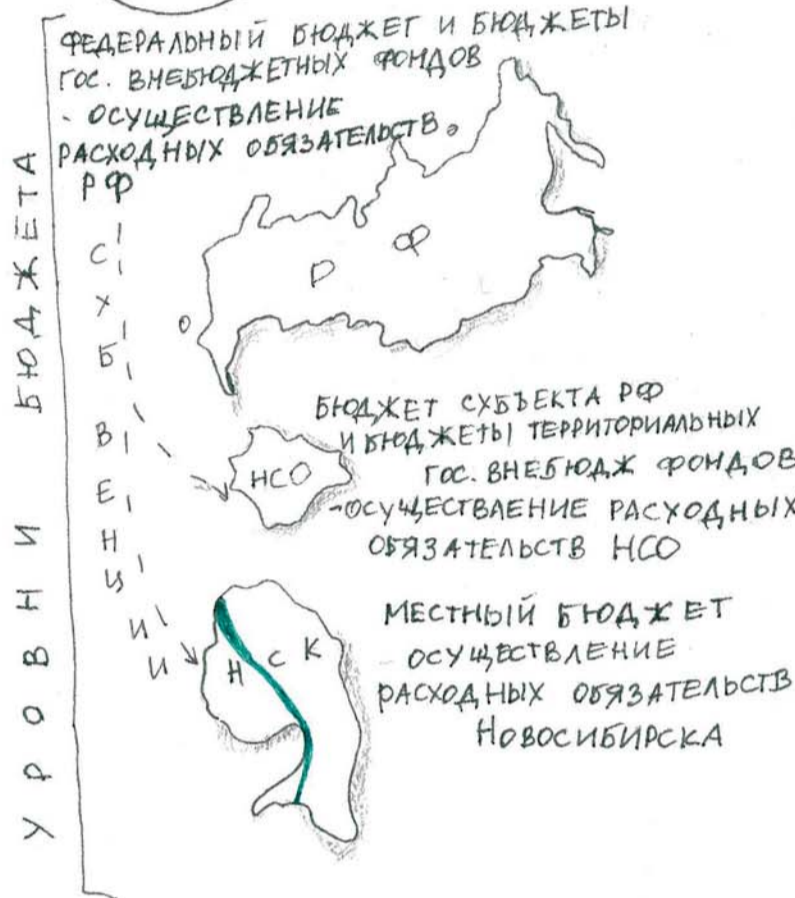 УРОВНИ БЮДЖЕТА
ФЕДЕРАЛЬНЫЙ БЮДЖЕТ И БЮДЖЕТЫ
ГОС. ВНЕБЮДЖЕТНЫХ ФОНДОВ
- ОСУЩЕСТВЛЕНИЕ
РАСХОДНЫХ ОБЯЗАТЕЛЬСТВ
РФ
СУБВЕНЦИИ
РФ
БЮДЖЕТ СУБЪЕКТА РФ
И БЮДЖЕТЫ ТЕРРИТОРИАЛЬНЫХ
ГОС. ВНЕБЮДЖ ФОНДОВ
-ОСУЩЕСТВЛЕНИЕ РАСХОДНЫХ
ОБЯЗАТЕЛЬСТВ НСО
НСО
МЕСТНЫЙ БЮДЖЕТ
- ОСУЩЕСТВЛЕНИЕ
РАСХОДНЫХ ОБЯЗАТЕЛЬСТВ
НОВОСИБИРСКА
НСК